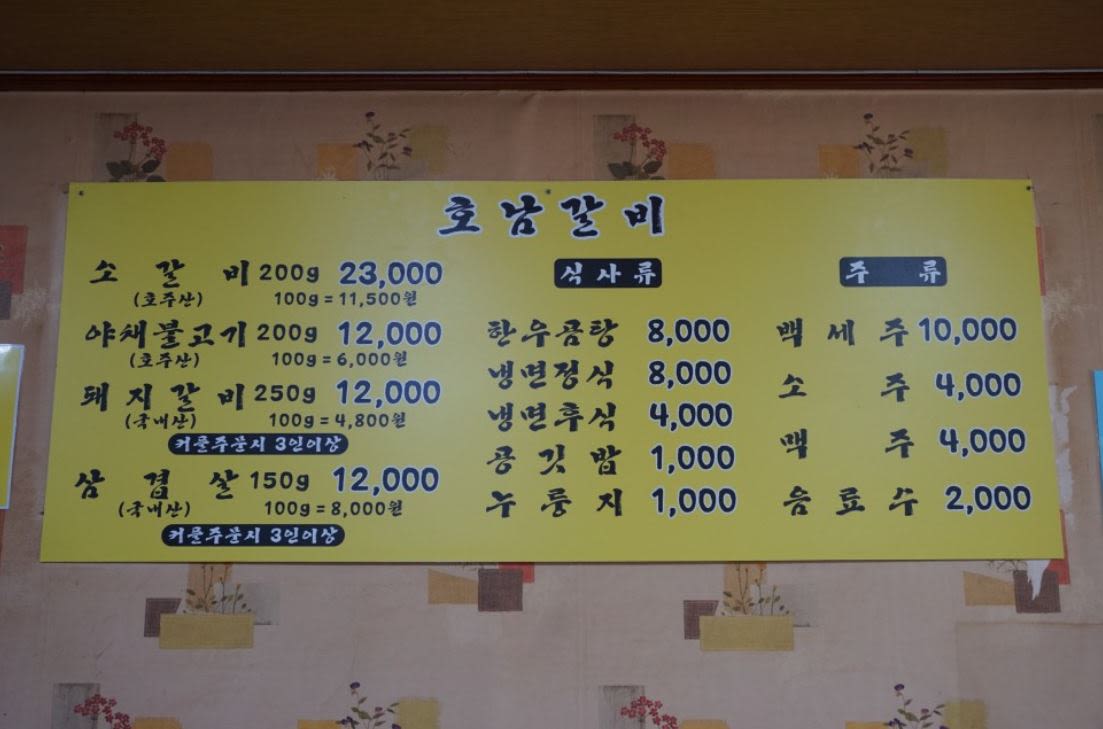 호남갈비
소갈비 200g 23,000
(호주산) 100g = 11,500원
야채불고기 200g 12,000
(호주산) 100g = 6,000원
돼지갈비 250g 12,000
(국내산) 100g = 4,800원
커플주문시 3인이상
삼겹살 150g 12,000
(국내산) 100g = 8,000원
커플주문시 3인이상
식사류
한우곰탕 8,000
냉면정식 8,000
냉면후식 4,000
공깃밥 1,000
누룽지 1,000
주류
백세주 10,000
소주 4,000
맥주 4,000
음료수 2,000